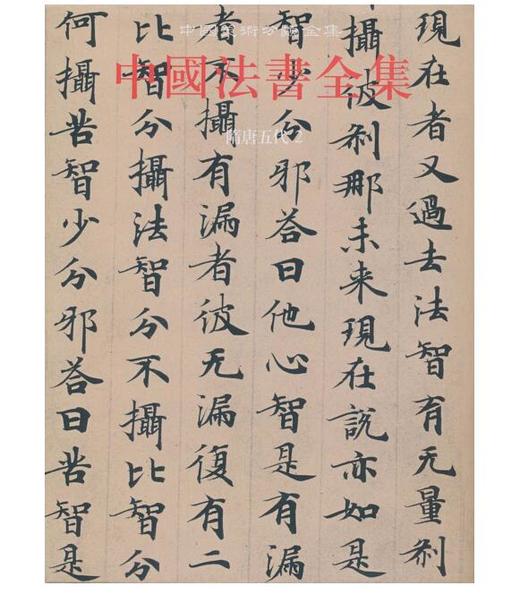 中國美術分類全集
中國法書全集
隋唐五代 2
現在者又過去法智有无量刹
攝彼刹那未来現在說亦如是
智少分邪答曰他心智是有漏
者不攝有漏者彼无漏復有二
比智分攝法智分不攝比智分
何攝苦智少分邪答曰苦智是